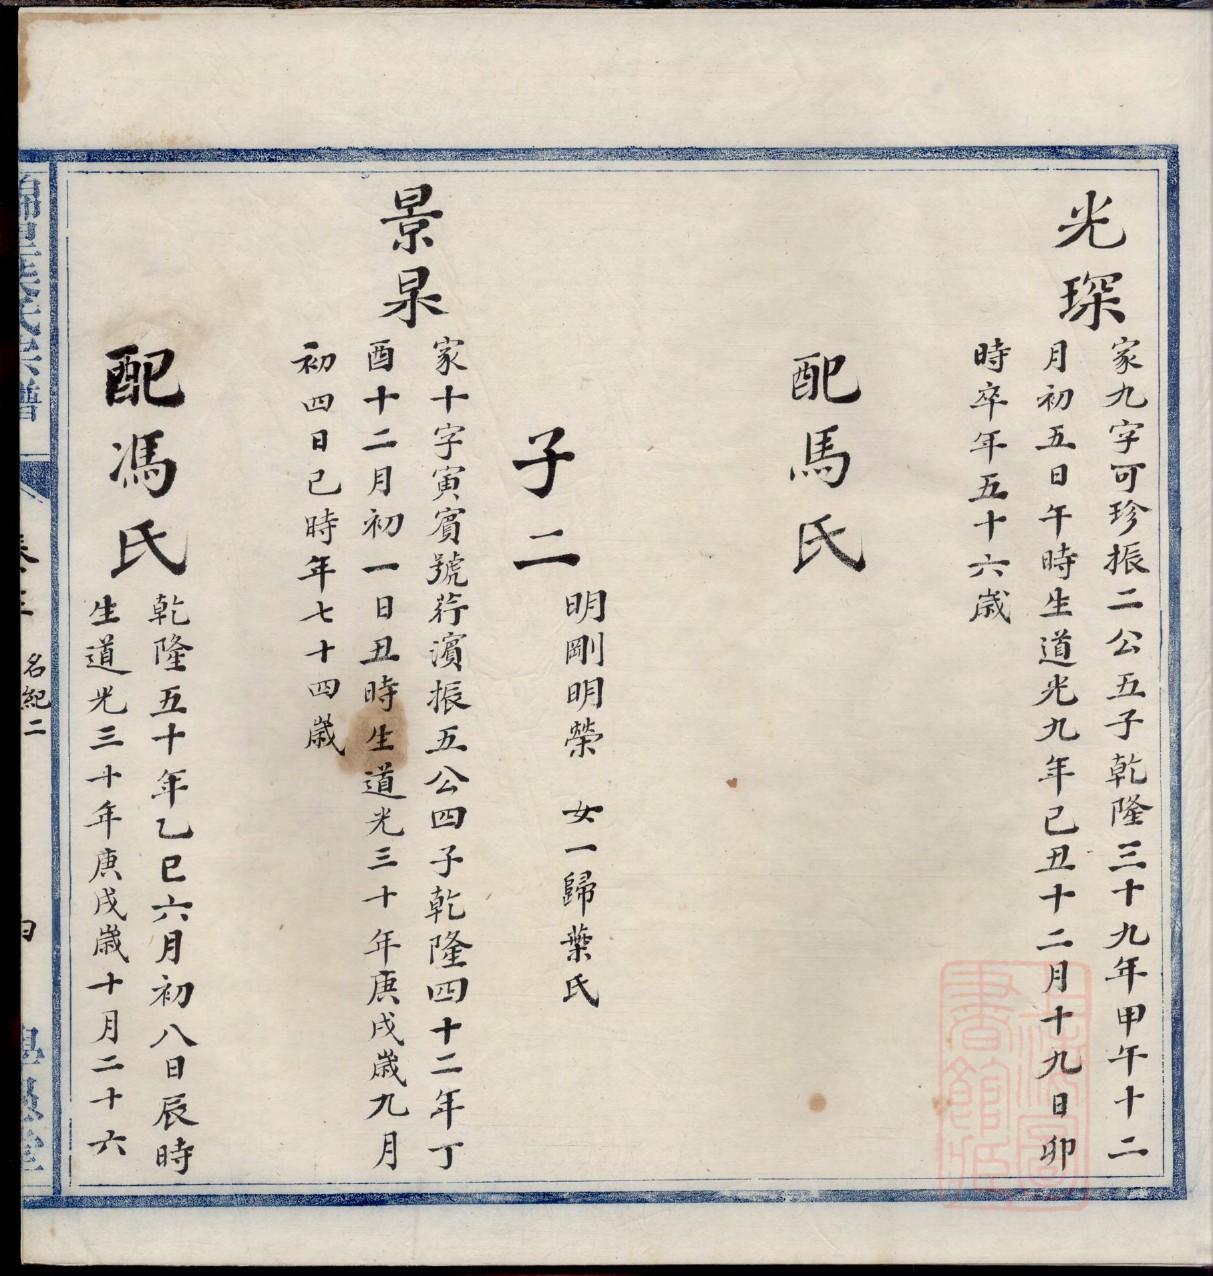 光琛
家九字可珍振二公五子乾隆三十九年甲午十二
月初五日午時生道光九年己丑十二月十九日卯
時卒年五十六歲
配馬氏
子二
明剛明榮 女一歸葉氏
景杲
家十字寅賓號荇濱振五公四子乾隆四十二年丁
酉十二月初一日丑時生道光三十年庚戌歲九月
初四日巳時年七十四歲
配馮氏
乾隆五十年乙巳六月初八日辰時
生道光三十年庚戌歲十月二十六
氏宗譜
名紀二